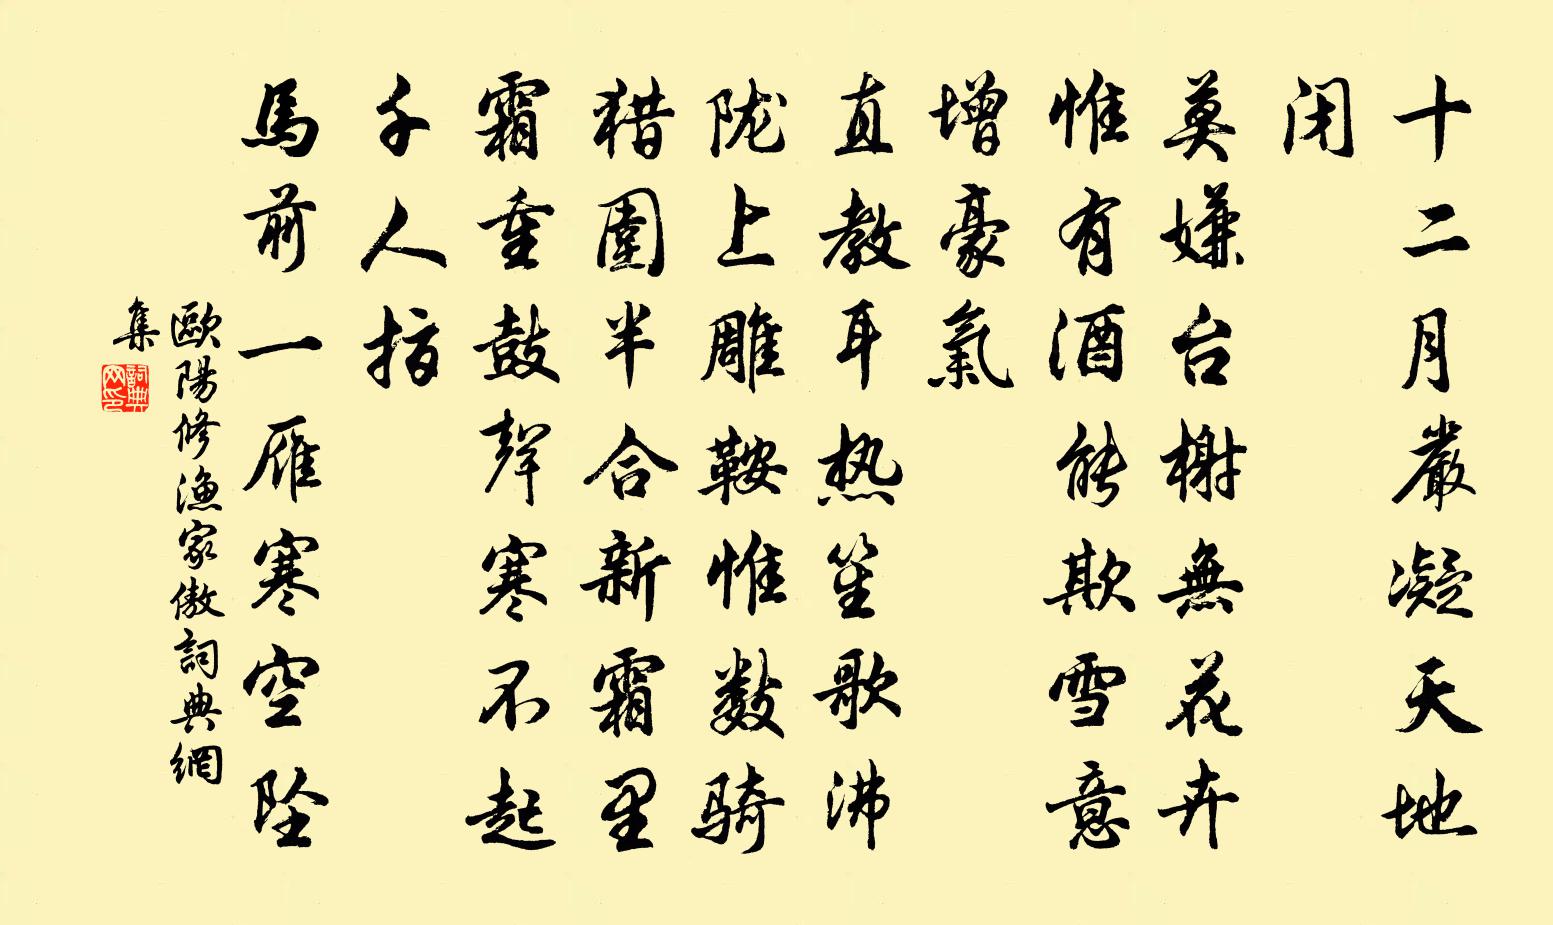 十二月嚴凝天地
闭
莫嫌台榭無花卉
惟有酒能欺雪意
增豪氣
直教耳热笙歌沸
陇上雕鞍惟数骑
猎圍半合新霜里
霜重鼓聲寒不起
千人指
馬前一雁寒空坠
歐陽修漁家傲詞典網
集
詞典
网印